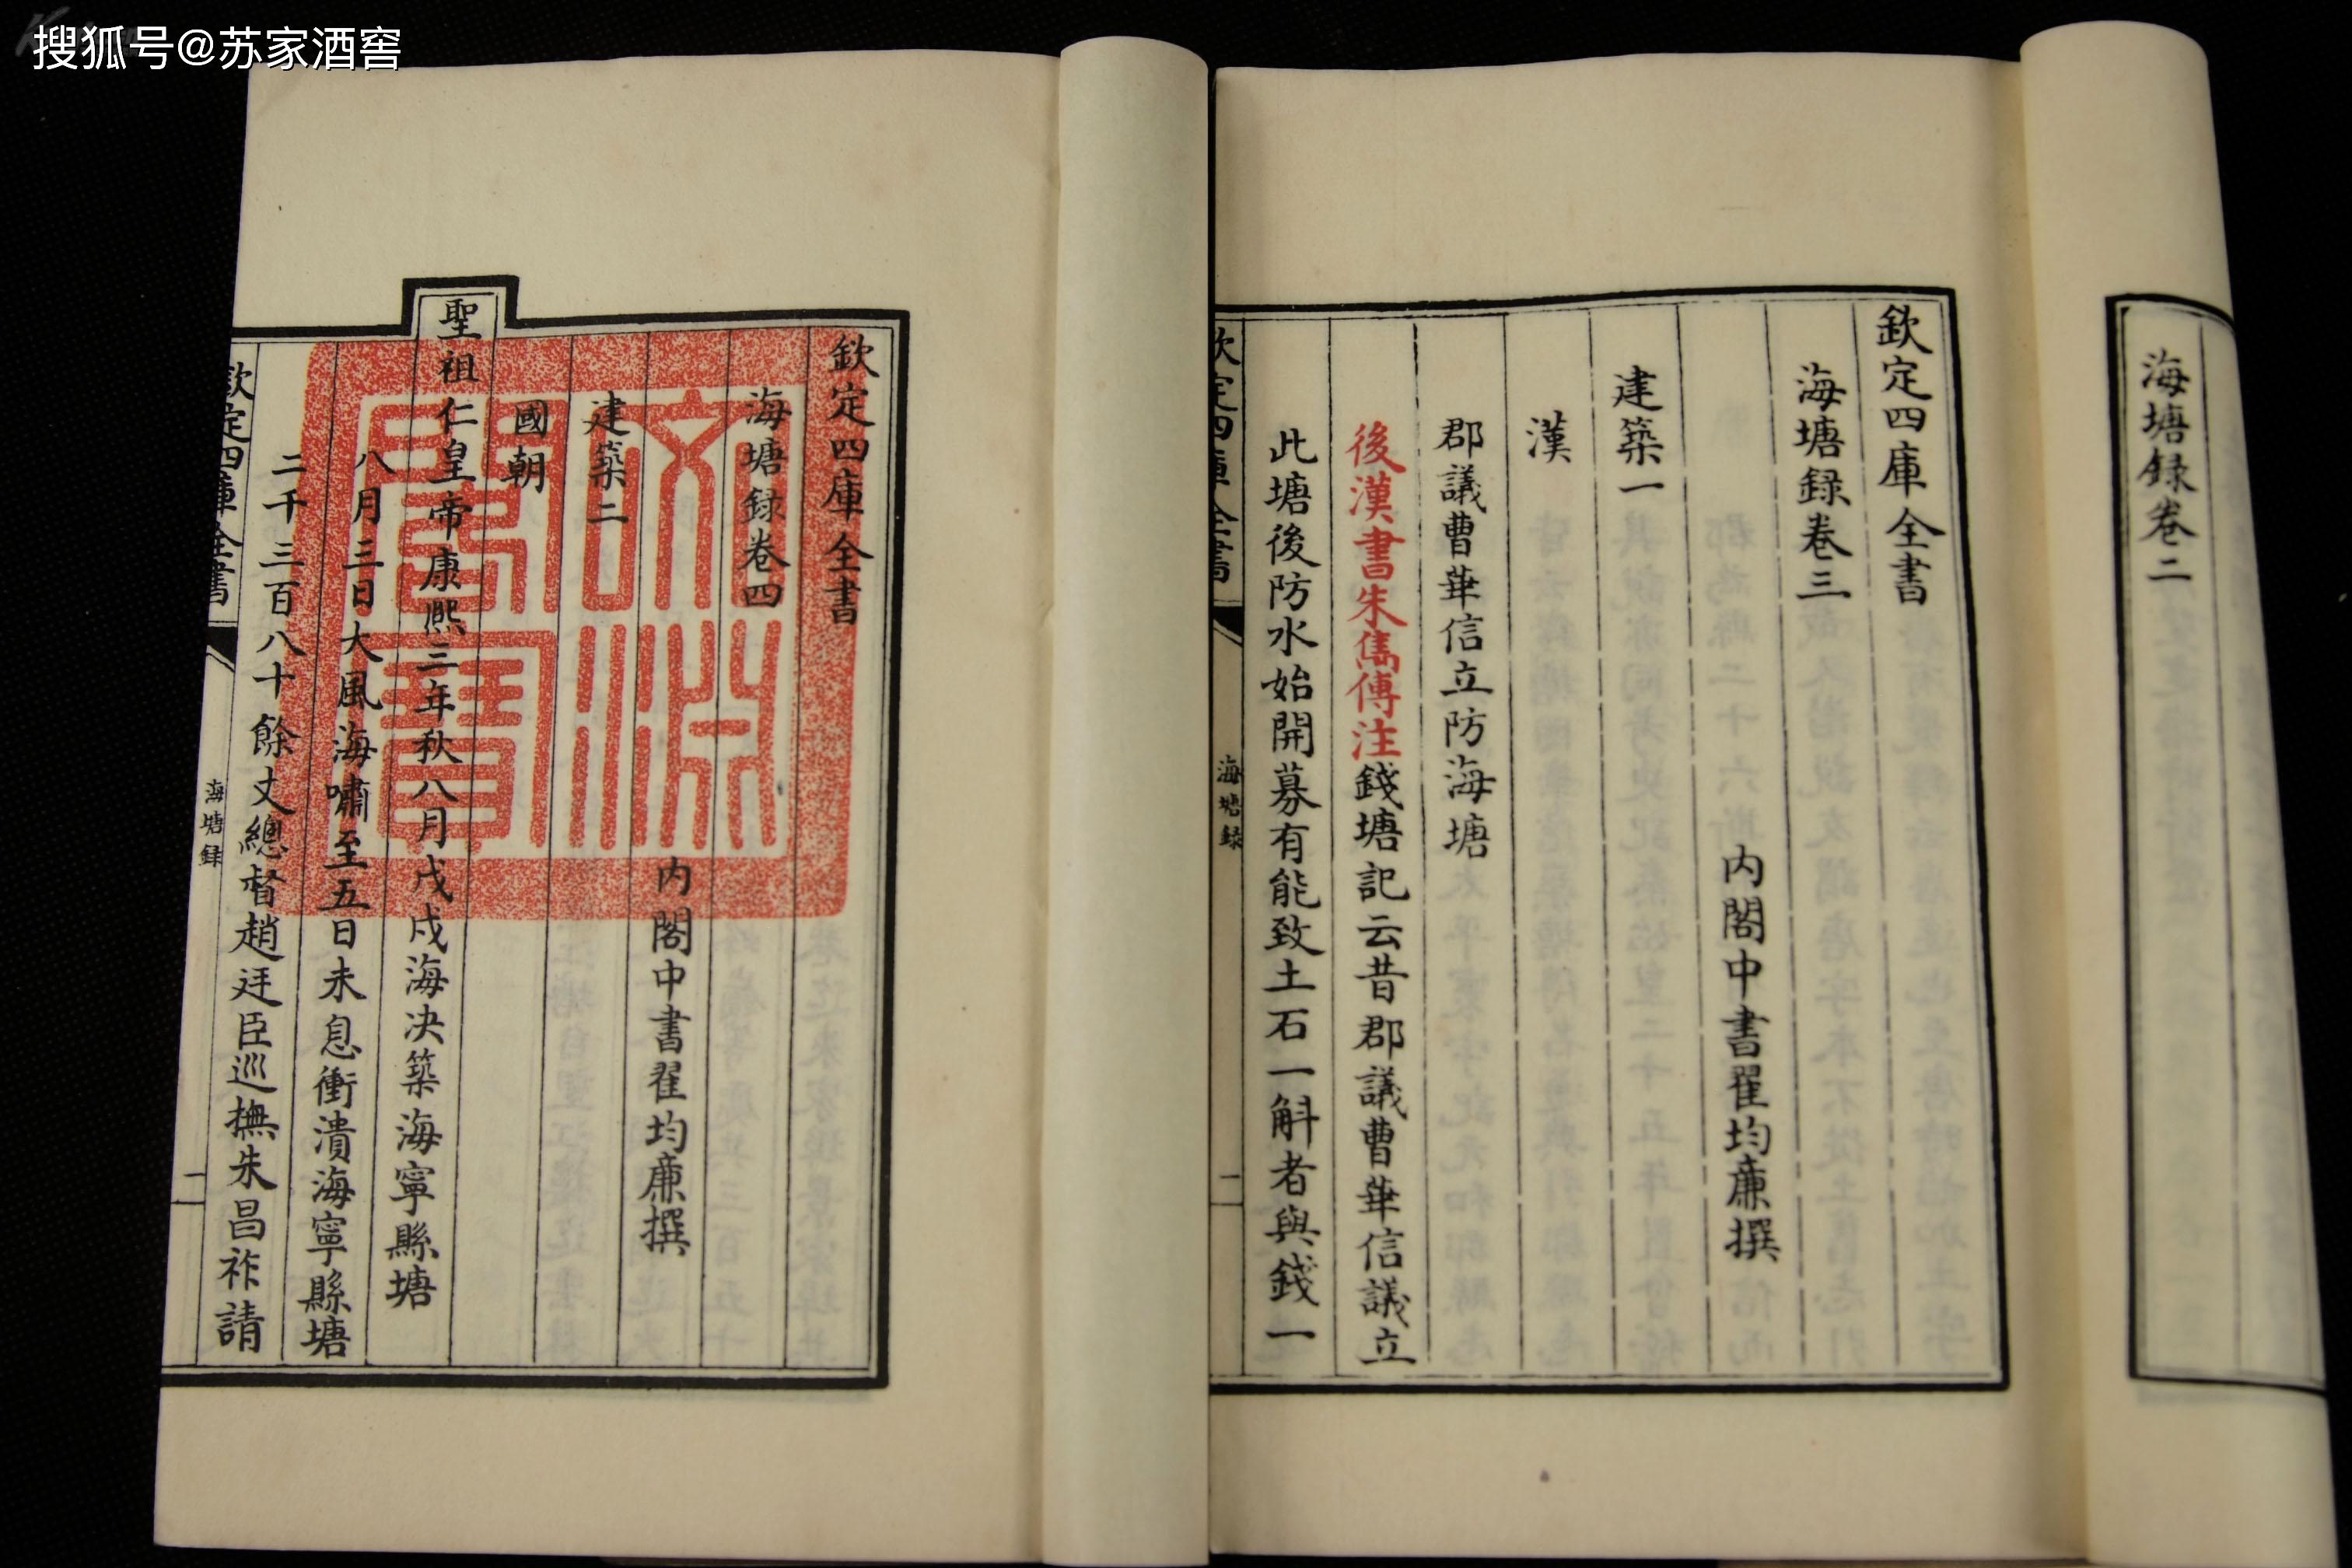 搜狐号@苏家酒窖
海塘録卷二
欽定四庫全書
海塘録卷三
內閣中書翟均廉撰
建築一
漢
郡議曹華信立防海塘
後漢書朱儁傳注錢塘記云昔郡議曹華信議立
此塘後防水始開募有能致土石一斛者與錢一
欽定四庫全書
海塘録
一
欽定四庫全書
海塘録卷四
內閣中書翟均廉撰
建築二
國朝
聖祖仁皇帝康熙三年秋八月戊戌海決築海寧縣塘
八月三日大風海嘯至五日未息衝潰海寧縣塘
二千三百八十餘丈總督趙廷臣巡撫朱昌祚請
欽定四庫全書
海塘録
文淵閣寶